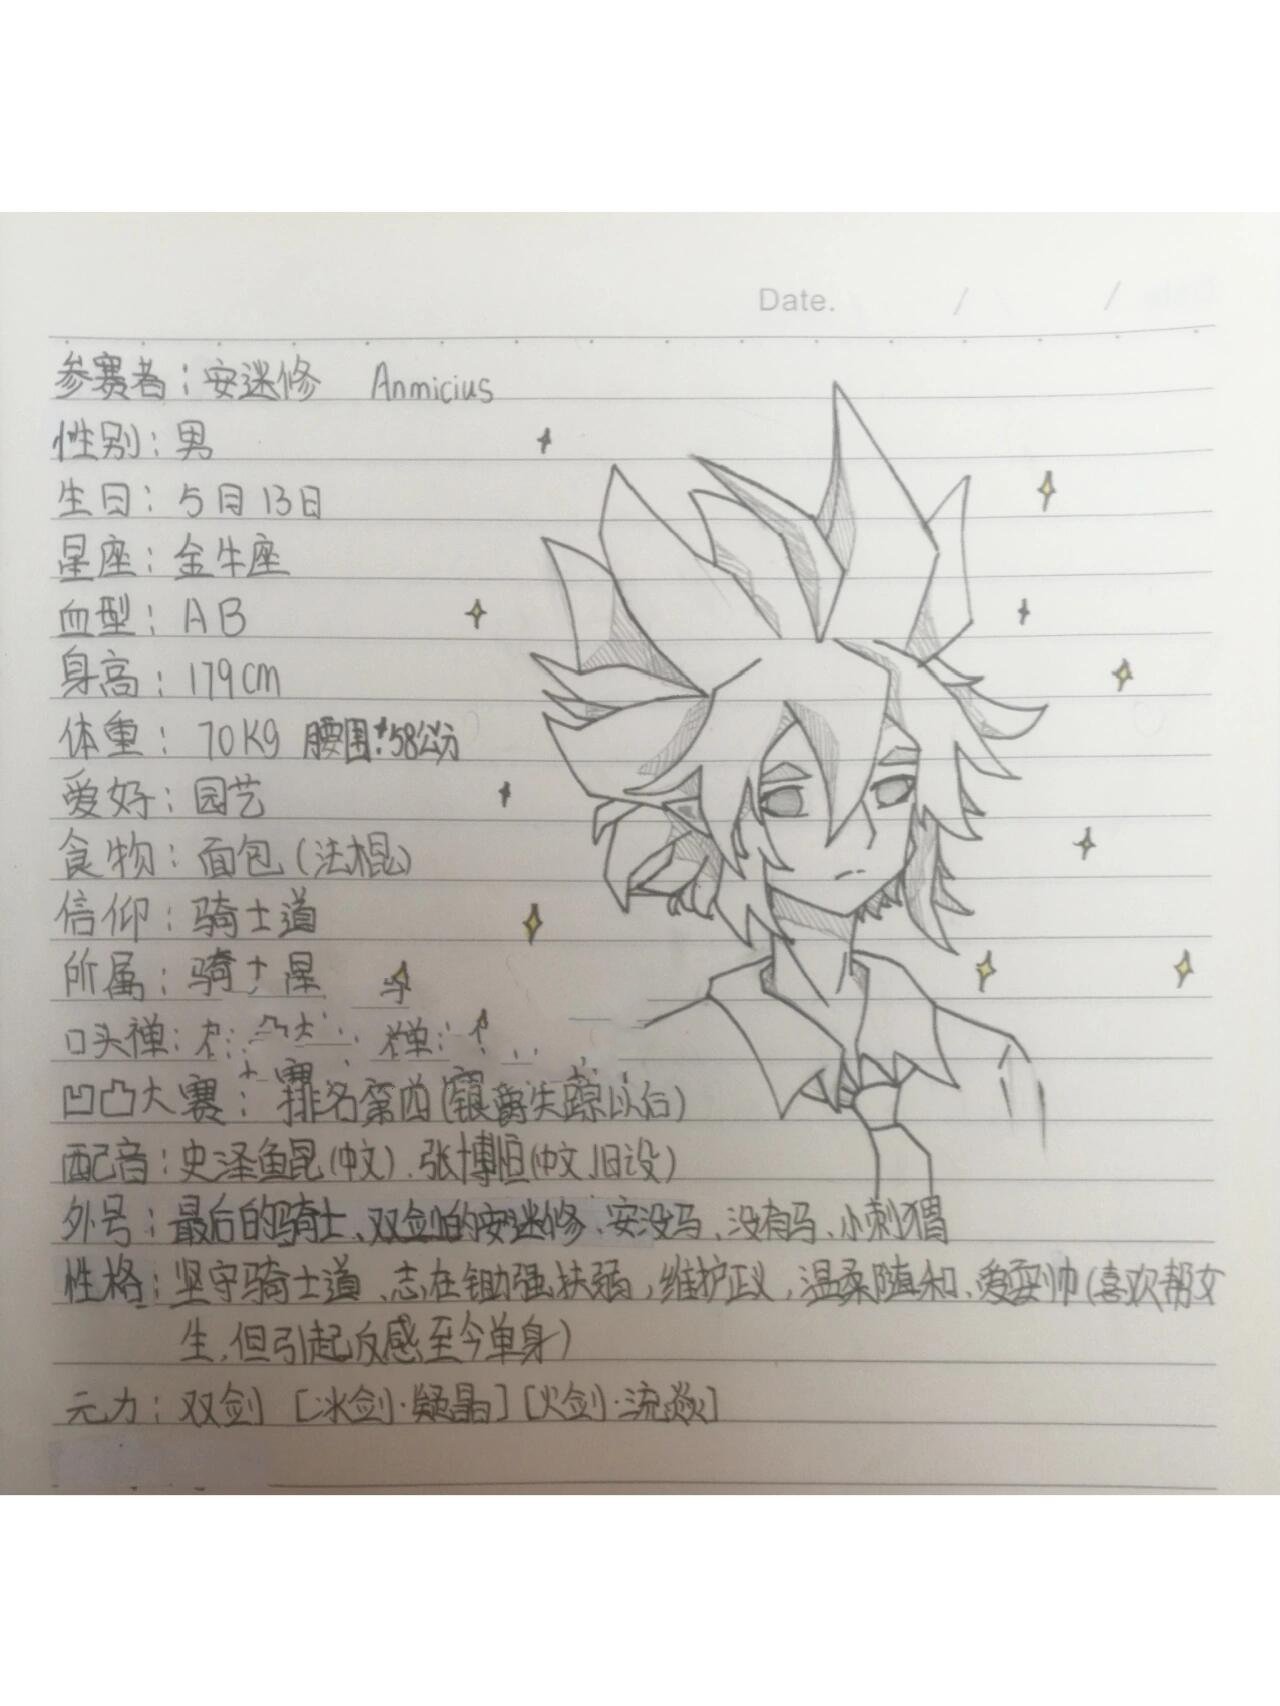 Date. / /
参赛者：安迷修 Anmicius
性别：男
生日：5月13日
星座：金牛座
血型：AB
身高：179cm
体重：70KG 腰围：58公分
爱好：园艺
食物：面包（法棍）
信仰：骑士道
所属：骑士星
口头禅：
凹凸大赛：排名第四（银爵失踪以后）
配音：史泽鲲（中文）、张博恒（中文、旧设）
外号：最后的骑士、双剑的安迷修、安没马、没有马、小刺猬
性格：坚守骑士道、志在锄强扶弱，维护正义，温柔随和、爱耍帅（喜欢帮女
生，但引起反感至今单身）
元力：双剑［冰剑·凝晶］［火剑·流焱］